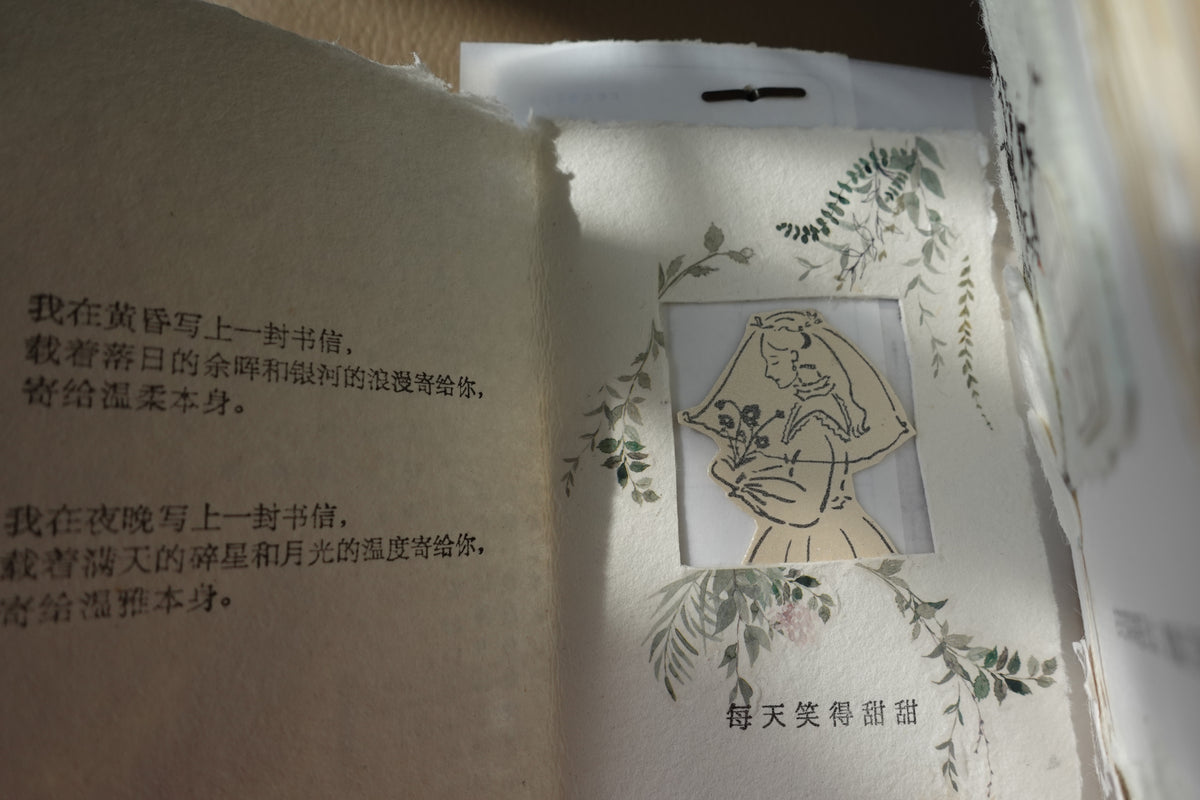 我在黄昏写上一封书信，
载着落日的余晖和银河的浪漫寄给你，
寄给温柔本身。
我在夜晚写上一封书信，
载着满天的碎星和月光的温度寄给你，
寄给温雅本身。
每天笑得甜甜